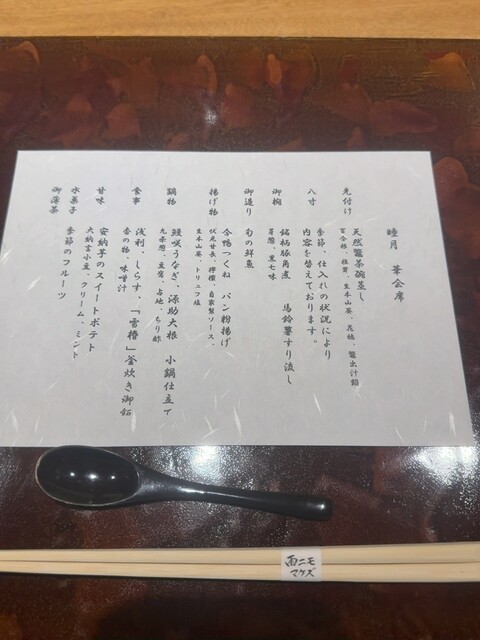 睦月　華会席
先付け
天然鼈茶碗蒸し
百合根、椎茸、生木山葵、花穂、鼈出汁餡
八寸
季節、仕入れの状況により
内容を替えております。
御椀
銘柄豚角煮　馬鈴薯すり流し
芽葱、黒七味
御造り
旬の鮮魚
揚げ物
合鴨つくね　パン粉揚げ
伏見甘長、檸檬、自家製ソース、
生木山葵、トリュフ塩
鍋物
鰻咲うなぎ、源助大根　小鍋仕立て
九条葱、豆腐、占地、ちり酢
食事
浅利、しらす、「雪椿」釜炊き御飯
香の物、味噌汁
甘味
安納芋のスイートポテト
大納言小豆、クリーム、ミント
水菓子
季節のフルーツ
御薄茶
雨ニモ
マケズ